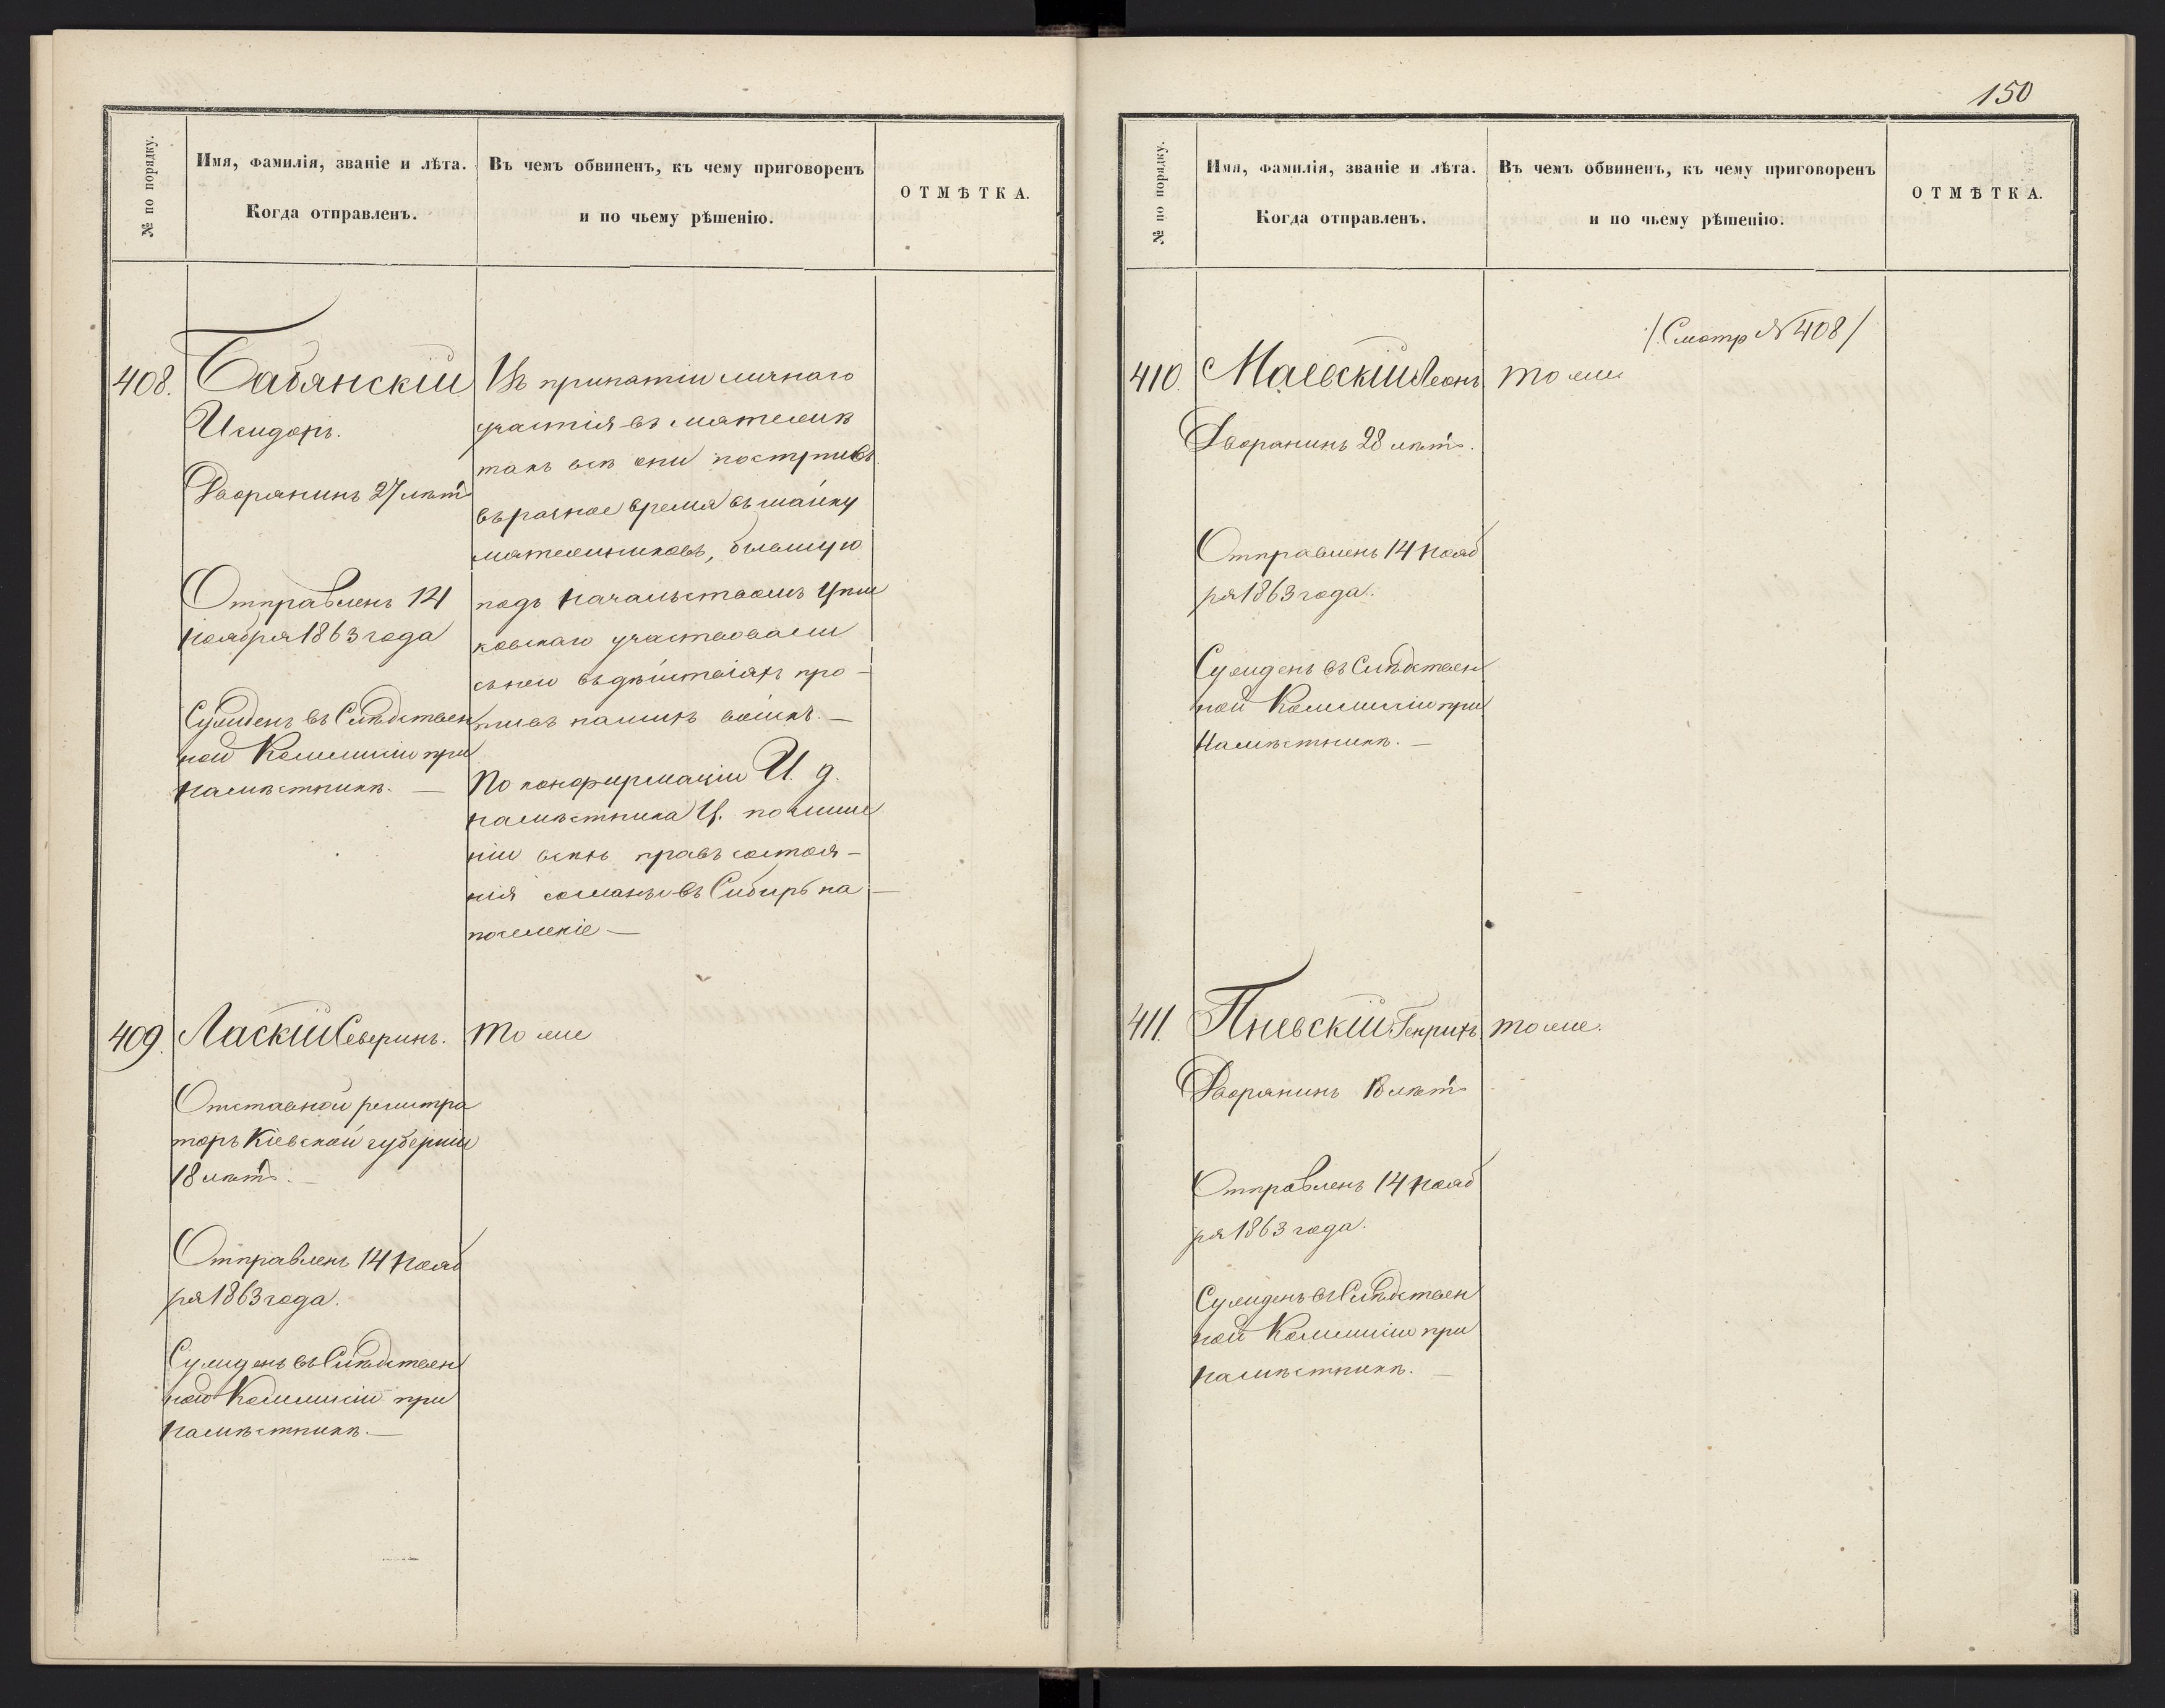 № по порядку.
Имя, фамилія, званіе и лѣта.
Когда отправленъ.
Въ чемъ обвиненъ, къ чему приговоренъ
и по чьему рѣшенію.
ОТМѢТКА.
408.
Бабянскій
Исидоръ.
Дворянинъ 27 лѣтъ
Отправленъ 14
ноября 1863 года
Сужденъ въ Слѣдствен
ной Коммисіи при
намѣстникѣ. —
Въ принятіи личнаго
участія въ мятежѣ
такъ всѣ они поступивъ
въ разное время въ шайку
мятежниковъ, бывшую
подъ начальствомъ
ковскаго участвовали
съ нею въ дѣйствіяхъ про-
тивъ нашихъ войскъ. —
По конфирмаціи И. д.
намѣстника Ц. по лише
ніи всѣхъ правъ состоя-
нія сосланы въ Сибирь на —
поселеніе —
409.
Ласкій Северинъ.
То же
Отставной регистра
торъ Кіевской губерніи
18 лѣтъ. —
Отправленъ 14 нояб
ря 1863 года.
Сужденъ въ Слѣдствен
ной Коммисіи при
намѣстникѣ. —
150
№ по порядку.
Имя, фамилія, званіе и лѣта.
Когда отправленъ.
Въ чемъ обвиненъ, къ чему приговоренъ
и по чьему рѣшенію.
ОТМѢТКА.
/Смотр № 408/
410.
Маевскій Леонъ
То же
Дворянинъ 28 лѣтъ.
Отправленъ 14 нояб
ря 1863 года.
Сужденъ въ Слѣдствен
ной Коммисіи при
Намѣстникѣ. —
411.
Пневскій Генрихъ
То же.
Дворянинъ 18 лѣтъ
Отправленъ 14 нояб
ря 1863 года.
Сужденъ въ Слѣдствен
ной Коммисіи при
намѣстникѣ. —